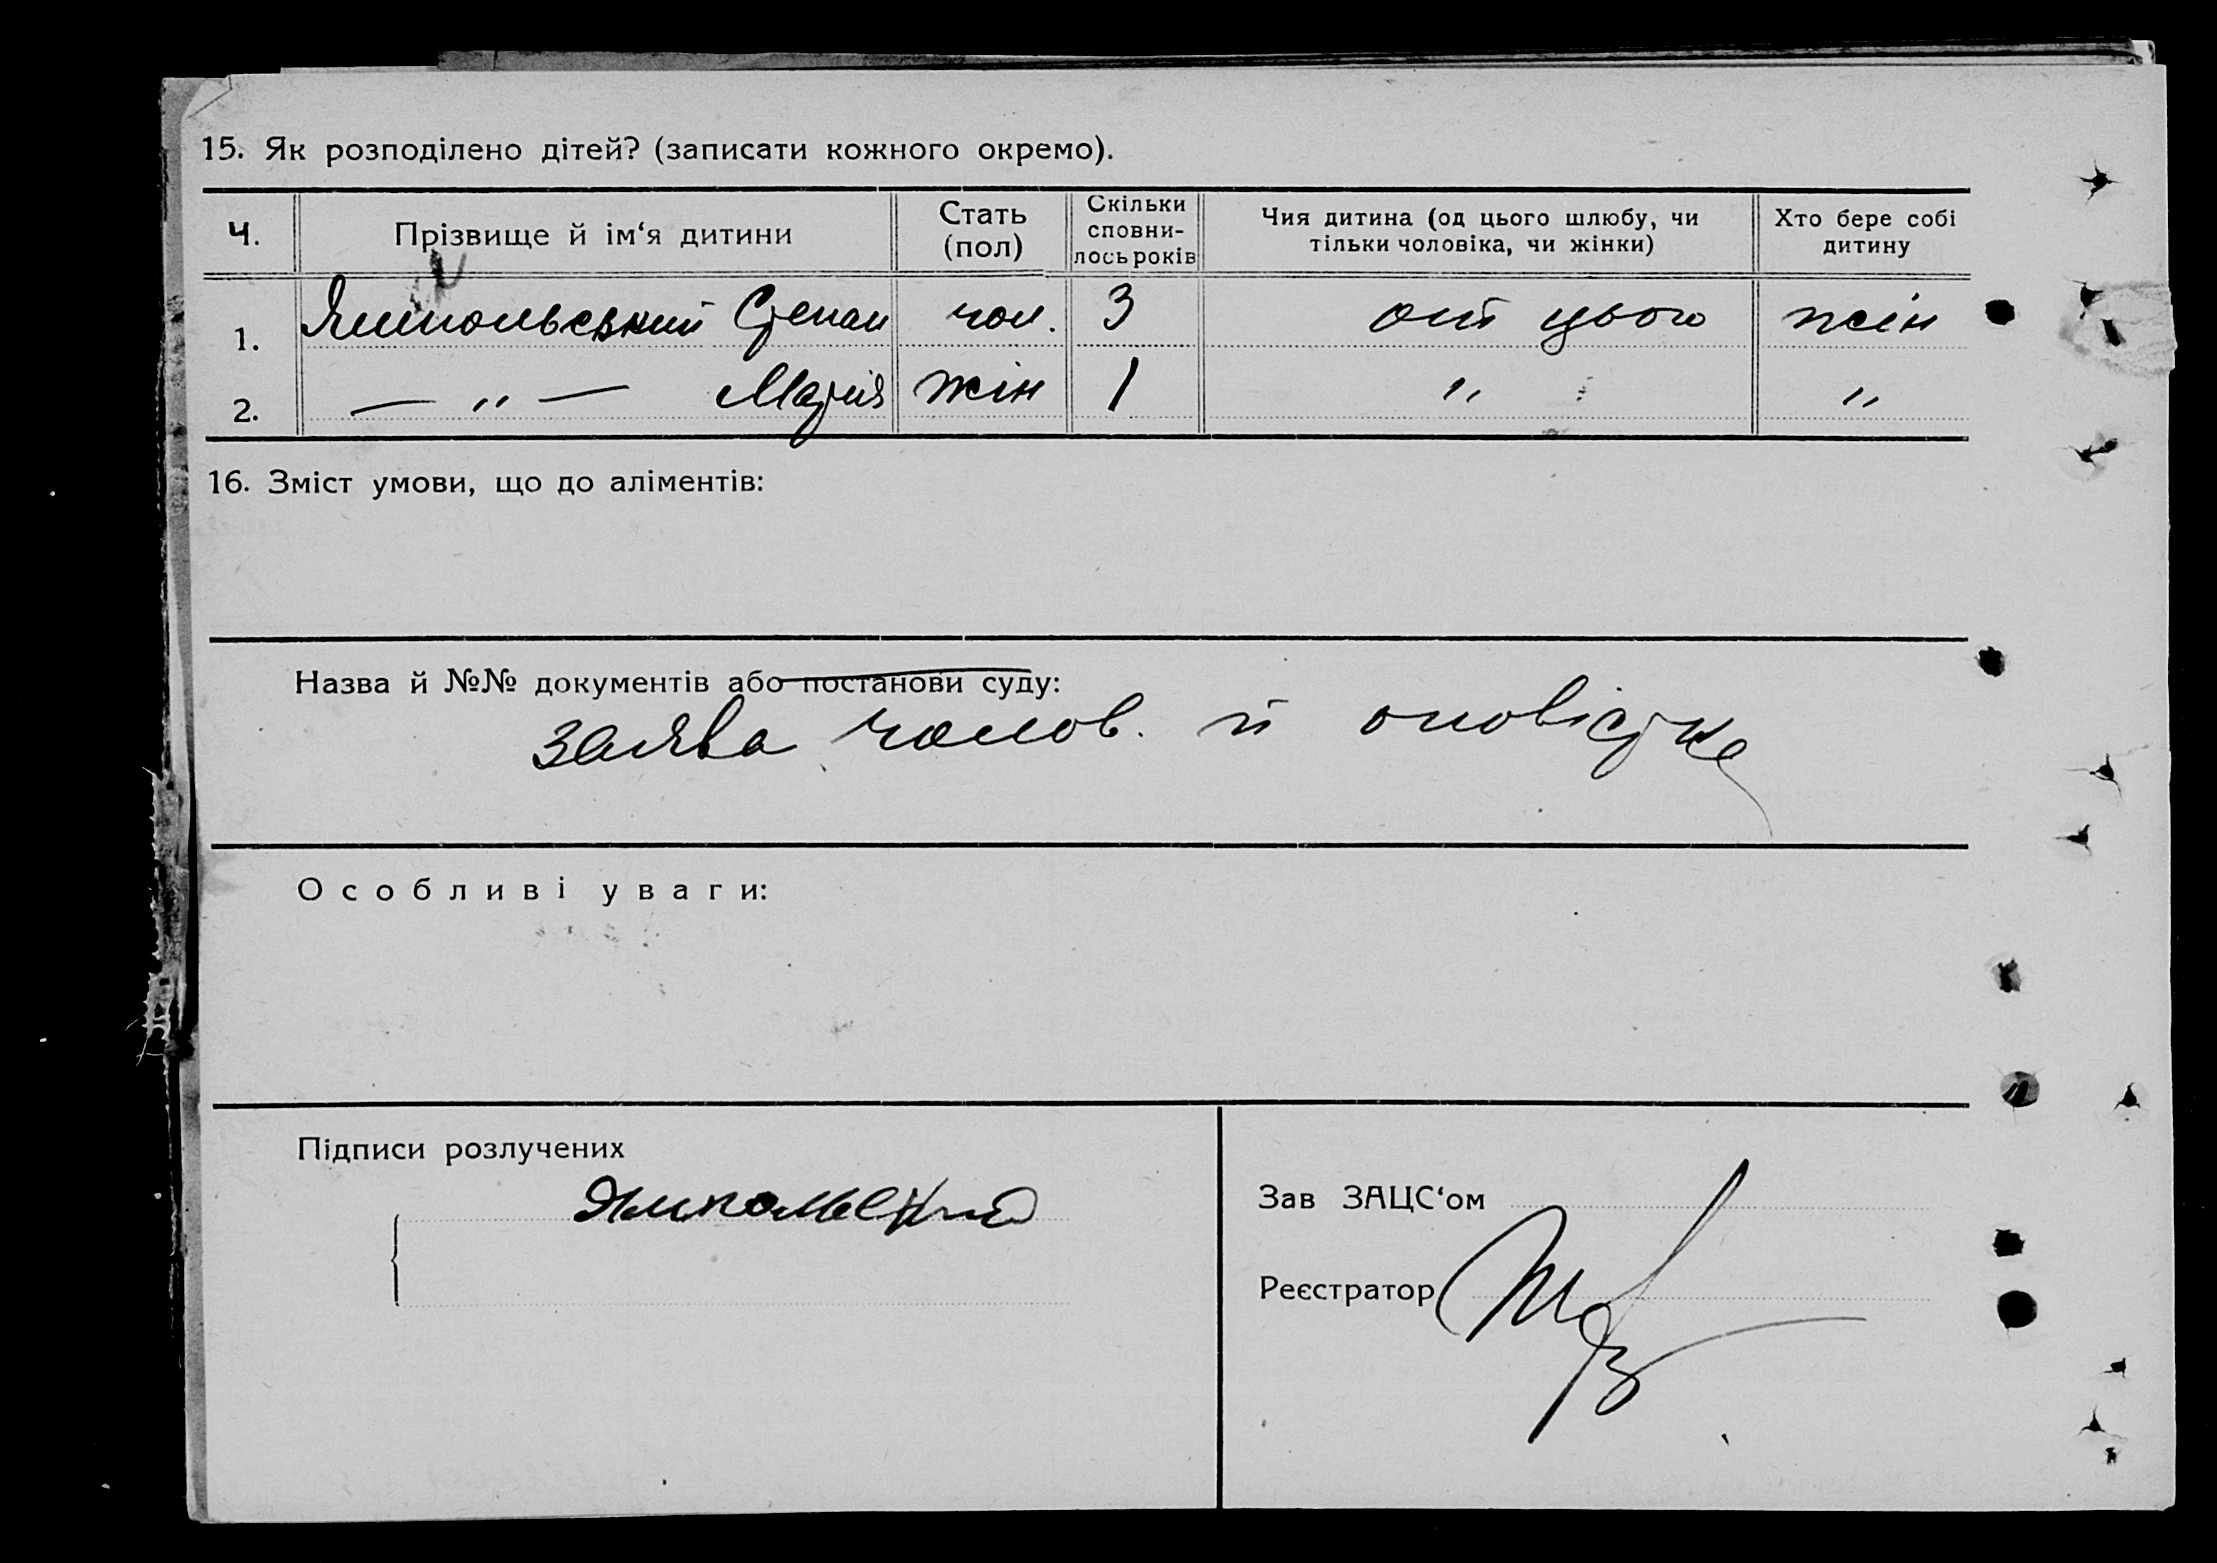 15. Як розподілено дітей? (записати кожного окремо).
Ч. Прізвище й ім‘я дитини Стать (пол) Скільки сповни-лось років Чия дитина (од цього шлюбу, чи тільки чоловіка, чи жінки) Хто бере собі дитину
1. Ямпольський Степан чол. 3 від цього жін
2. — „ — Марія жін 1 „ „
16. Зміст умови, що до аліментів:
Назва й №№ документів або постанови суду:
заява чолов. й оповістка
Особливі уваги:
Підписи розлучених
Ямпольский
Зав ЗАЦС‘ом
Реєстратор